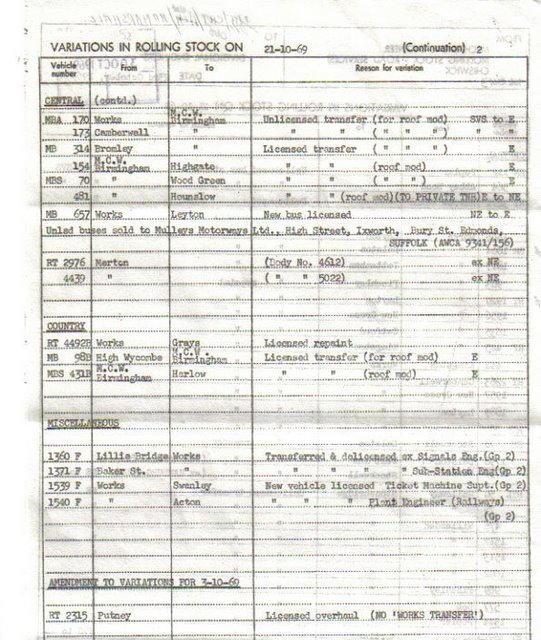 VARIATIONS IN ROLLING STOCK ON 21-10-69 (Continuation) 2
Vehicle number From To Reason for variation
CENTRAL (contd.)
MBA 170 Works M.C.W. Birmingham Unlicensed transfer (for roof mod) SVS. to E
173 Camberwell " " " ( " " " ) " "
MB 314 Bromley " Licensed transfer ( " " " ) E
154 M.C.W. Birmingham Highgate " " (roof mod) E
MBS 70 " Wood Green " " ( " " ) E
481 " Hounslow " " (roof mod)(TO PRIVATE TNR)E to NE
MB 657 Works Leyton New bus licensed NE to E
Unlsd buses sold to Mulleys Motorways Ltd., High Street, Ixworth, Bury St. Edmonds,
SUFFOLK (AWCA 9341/156)
RT 2976 Merton (Body No. 4612) ex NE
4439 " ( " " 5022) ex NE
COUNTRY
RT 4492B Works Grays Licensed repaint
MB 98B High Wycombe M.C.W. Birmingham Licensed transfer (for roof mod) E
MBS 431B M.C.W. Birmingham Harlow " " (roof mod) E
MISCELLANEOUS
1360 F Lillie Bridge Works Transferred & delicensed ex Signals Eng.(Gp 2)
1371 F Baker St. " " " " " Sub-Station Eng(Gp 2)
1539 F Works Swanley New vehicle licensed Ticket Machine Supt.(Gp 2)
1540 F " Acton " " " Plant Engineer (Railways)
(Gp 2)
AMENDMENT TO VARIATIONS FOR 3-10-69
RT 2315 Putney Licensed overhaul (NO 'WORKS TRANSFER')